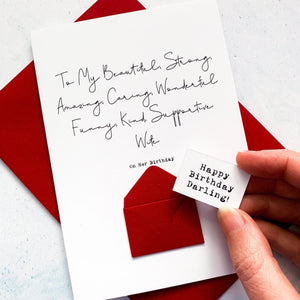 To My Beautiful, Strong,
Amazing, Caring, Wonderful
Funny, Kind, Supportive
Wife
On Her Birthday
Happy
Birthday
Darling!